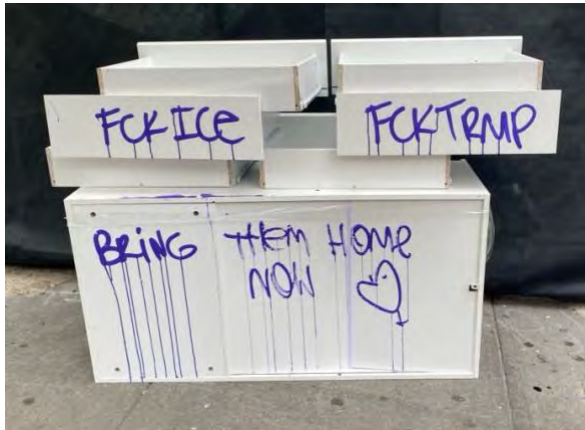 FCK ICE
FCK TRMP
BRING THEM HOME
NOW